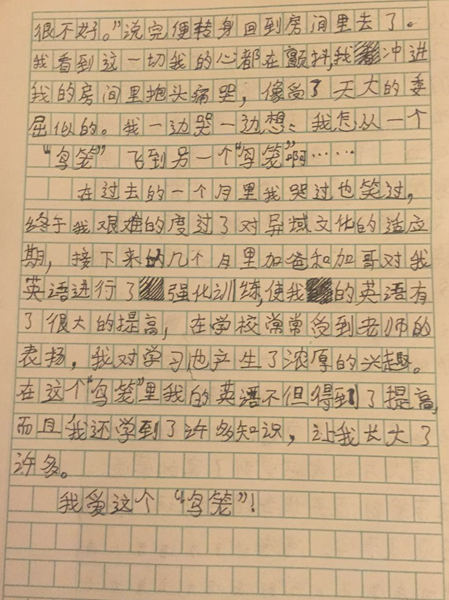 很不好。”说完便转身回到房间里去了。
我看到这一切我的心都在颤抖,我冲进
我的房间里抱头痛哭，像受了天大的委
屈似的。我一边哭一边想：我怎从一个
“鸟笼” 飞到另一个“鸟笼”啊……
在过去的一个月里我哭过也笑过，
终于我艰难的度过了对异域文化的适应
期，接下来的几个月里加爸和加哥对我
英语进行了强化训练,使我的英语有
了很大的提高，在学校常常受到老师的
表扬，我对学习也产生了浓厚的兴趣。
在这个“鸟笼”里我的英语不但得到了提高,
而且我还学到了许多知识，让我长大了
许多。
我爱这个 “鸟笼”!